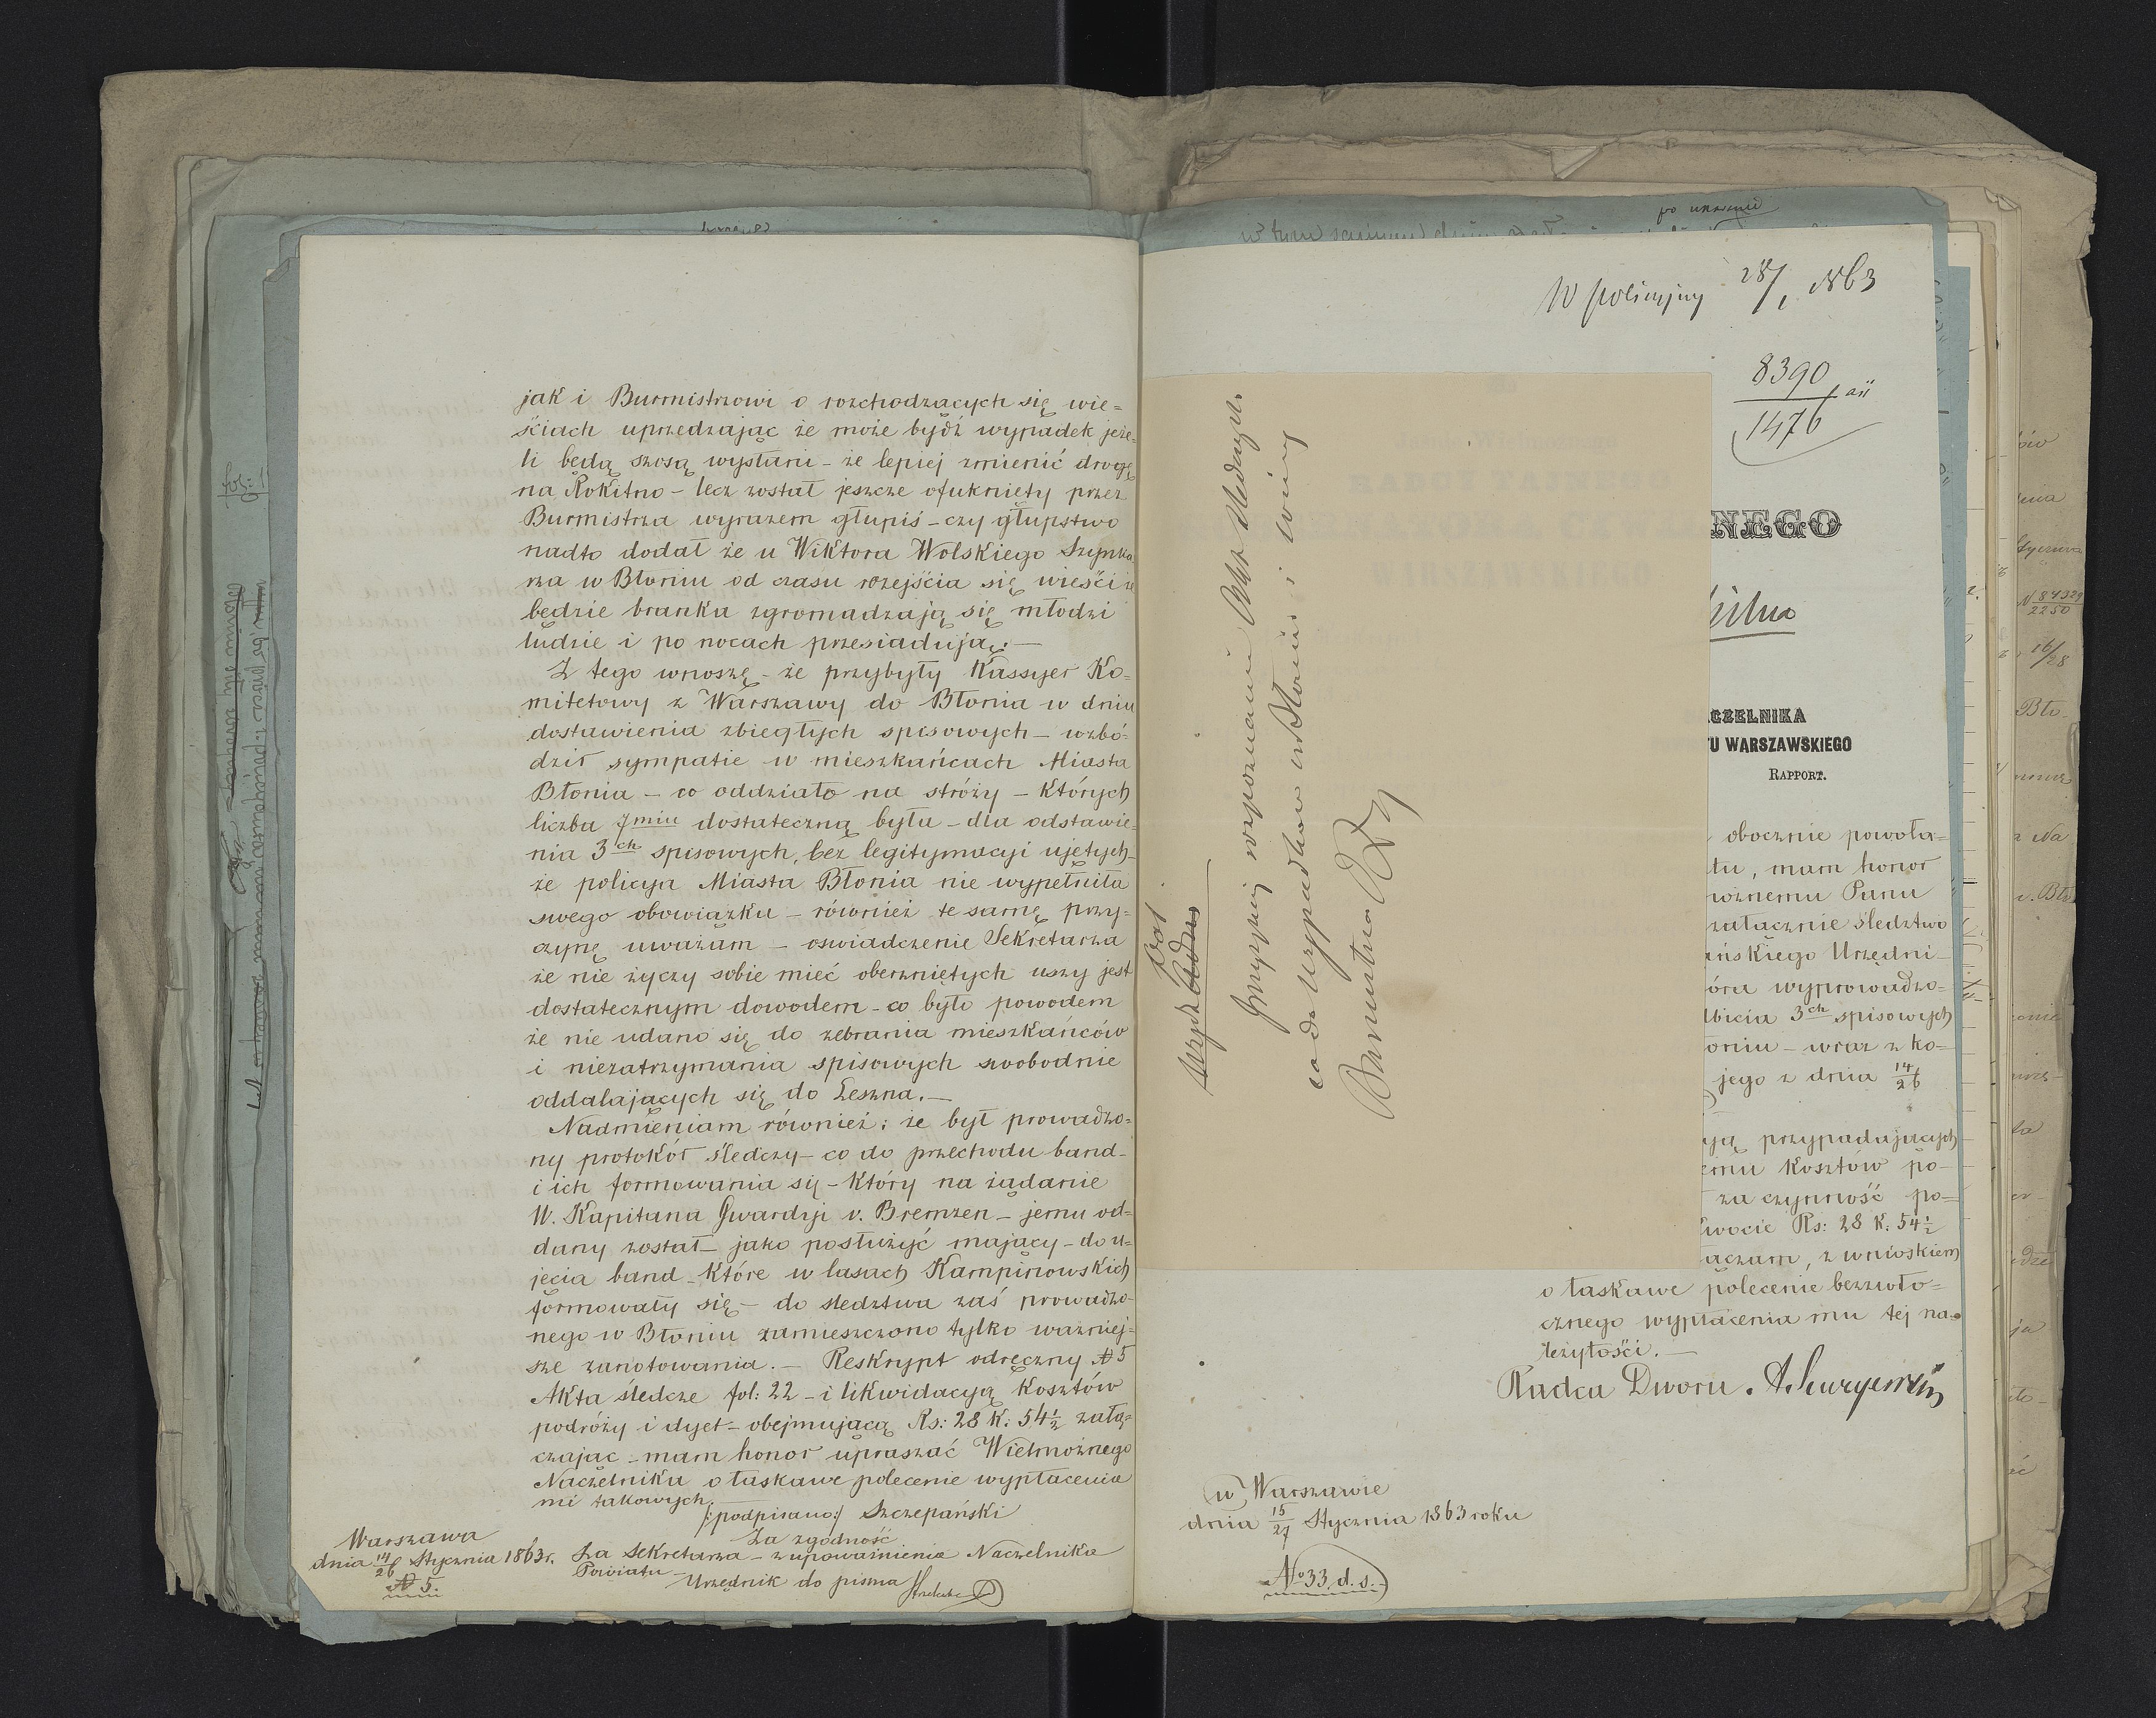 jak i Burmistrzowi o rozchodzących się wie=
ściach uprzedzając że może bydź wypadek jeże=
li będą szosą wysłani – że lepiej zmienić drogę
na Rokitno – lecz został jeszcze ofuknięty przez
Burmistrza wyrazem głupiś – czy głupstwo
nadto dodał że u Wiktora Wolskiego Szynka
rza w Błoniu od czasu rozejścia się wieści że
będzie branka zgromadzają się młodzi
ludzie i po nocach przesiadują. —
Z tego wnoszę – że przybyły Kassyer Ko=
mitetowy z Warszawy do Błonia w dniu
dostawienia zbiegłych spisowych – wzbó=
dził sympatie w mieszkańcach Miasta
Błonia – co oddziało na stróży – których
liczba 7miu dostateczną była – dla odstawie=
nia 3ch spisowych, bez legitymacyi ujętych –
że policyja Miasta Błonia nie wypełniła
swego obowiązku – również te samę przy=
czynę uważam – oswiadczenie Sekretarza
że nie życzy sobie mieć oberzniętych uszy jest
dostatecznym dowodem – co było powodem
że nie udano się do zebrania mieszkańców
i niezatrzymania spisowych swobodnie
oddalających się do Leszna. —
Nadmieniam również: że był prowadzo=
ny protokół śledczy – co do przechodu band –
i ich formowania się – który na żądanie
W. Kapitana Gwardyi v. Bremzen – jemu od=
dany został – jako posłużyć mający – do u=
jęcia band – które w lasach Kampinowskich
formowały się – do sledztwa zaś prowadzo=
nego w Błoniu zamieszczono tylko ważniej=
sze zanotowania. — Reskrypt odręczny № 5
Akta śledcze fol: 22 – i likwidacyją kosztów
podróży i dyet – obejmującą Rs: 28 K: 54½ załą=
czając – mam honor upraszać Wielmożnego
Naczelnika o łaskawe polecenie wypłacenia
mi takowych.
/:podpisano:/ Szczepański
Za zgodność
Za Sekretarza – z upoważnienia Naczelnika
Powiatu –
Urzędnik do pisma
Warszawa
dnia 14/26 Stycznia 1863 r.
№ 5.
W policyjny 28/1 1863
8390
1476
NEGO
CZELNIKA
TU WARSZAWSKIEGO
RAPPORT.
obocznie powoła=
tu, mam honor
możnemu Panu
załącznie śledztwo
ańskiego Urzędni=
óra wyprowadzo=
bicia 3ch spisowych
oniu – wraz z ko=
jego z dnia 14/26
yją przypadających
emu kosztów po=
za czynność po=
wocie Rs: 28 K: 54½
ączam, z wnioskiem
o łaskawe polecenie bezzwło=
cznego wypłacenia mu tej na=
leżytości. —
Radca Dworu.
w Warszawie
dnia 15/27 Stycznia 1863 roku
№ 33 d. s.
co do wypadków w Błoniu i
Burmistrza
po
w tym samym dniu